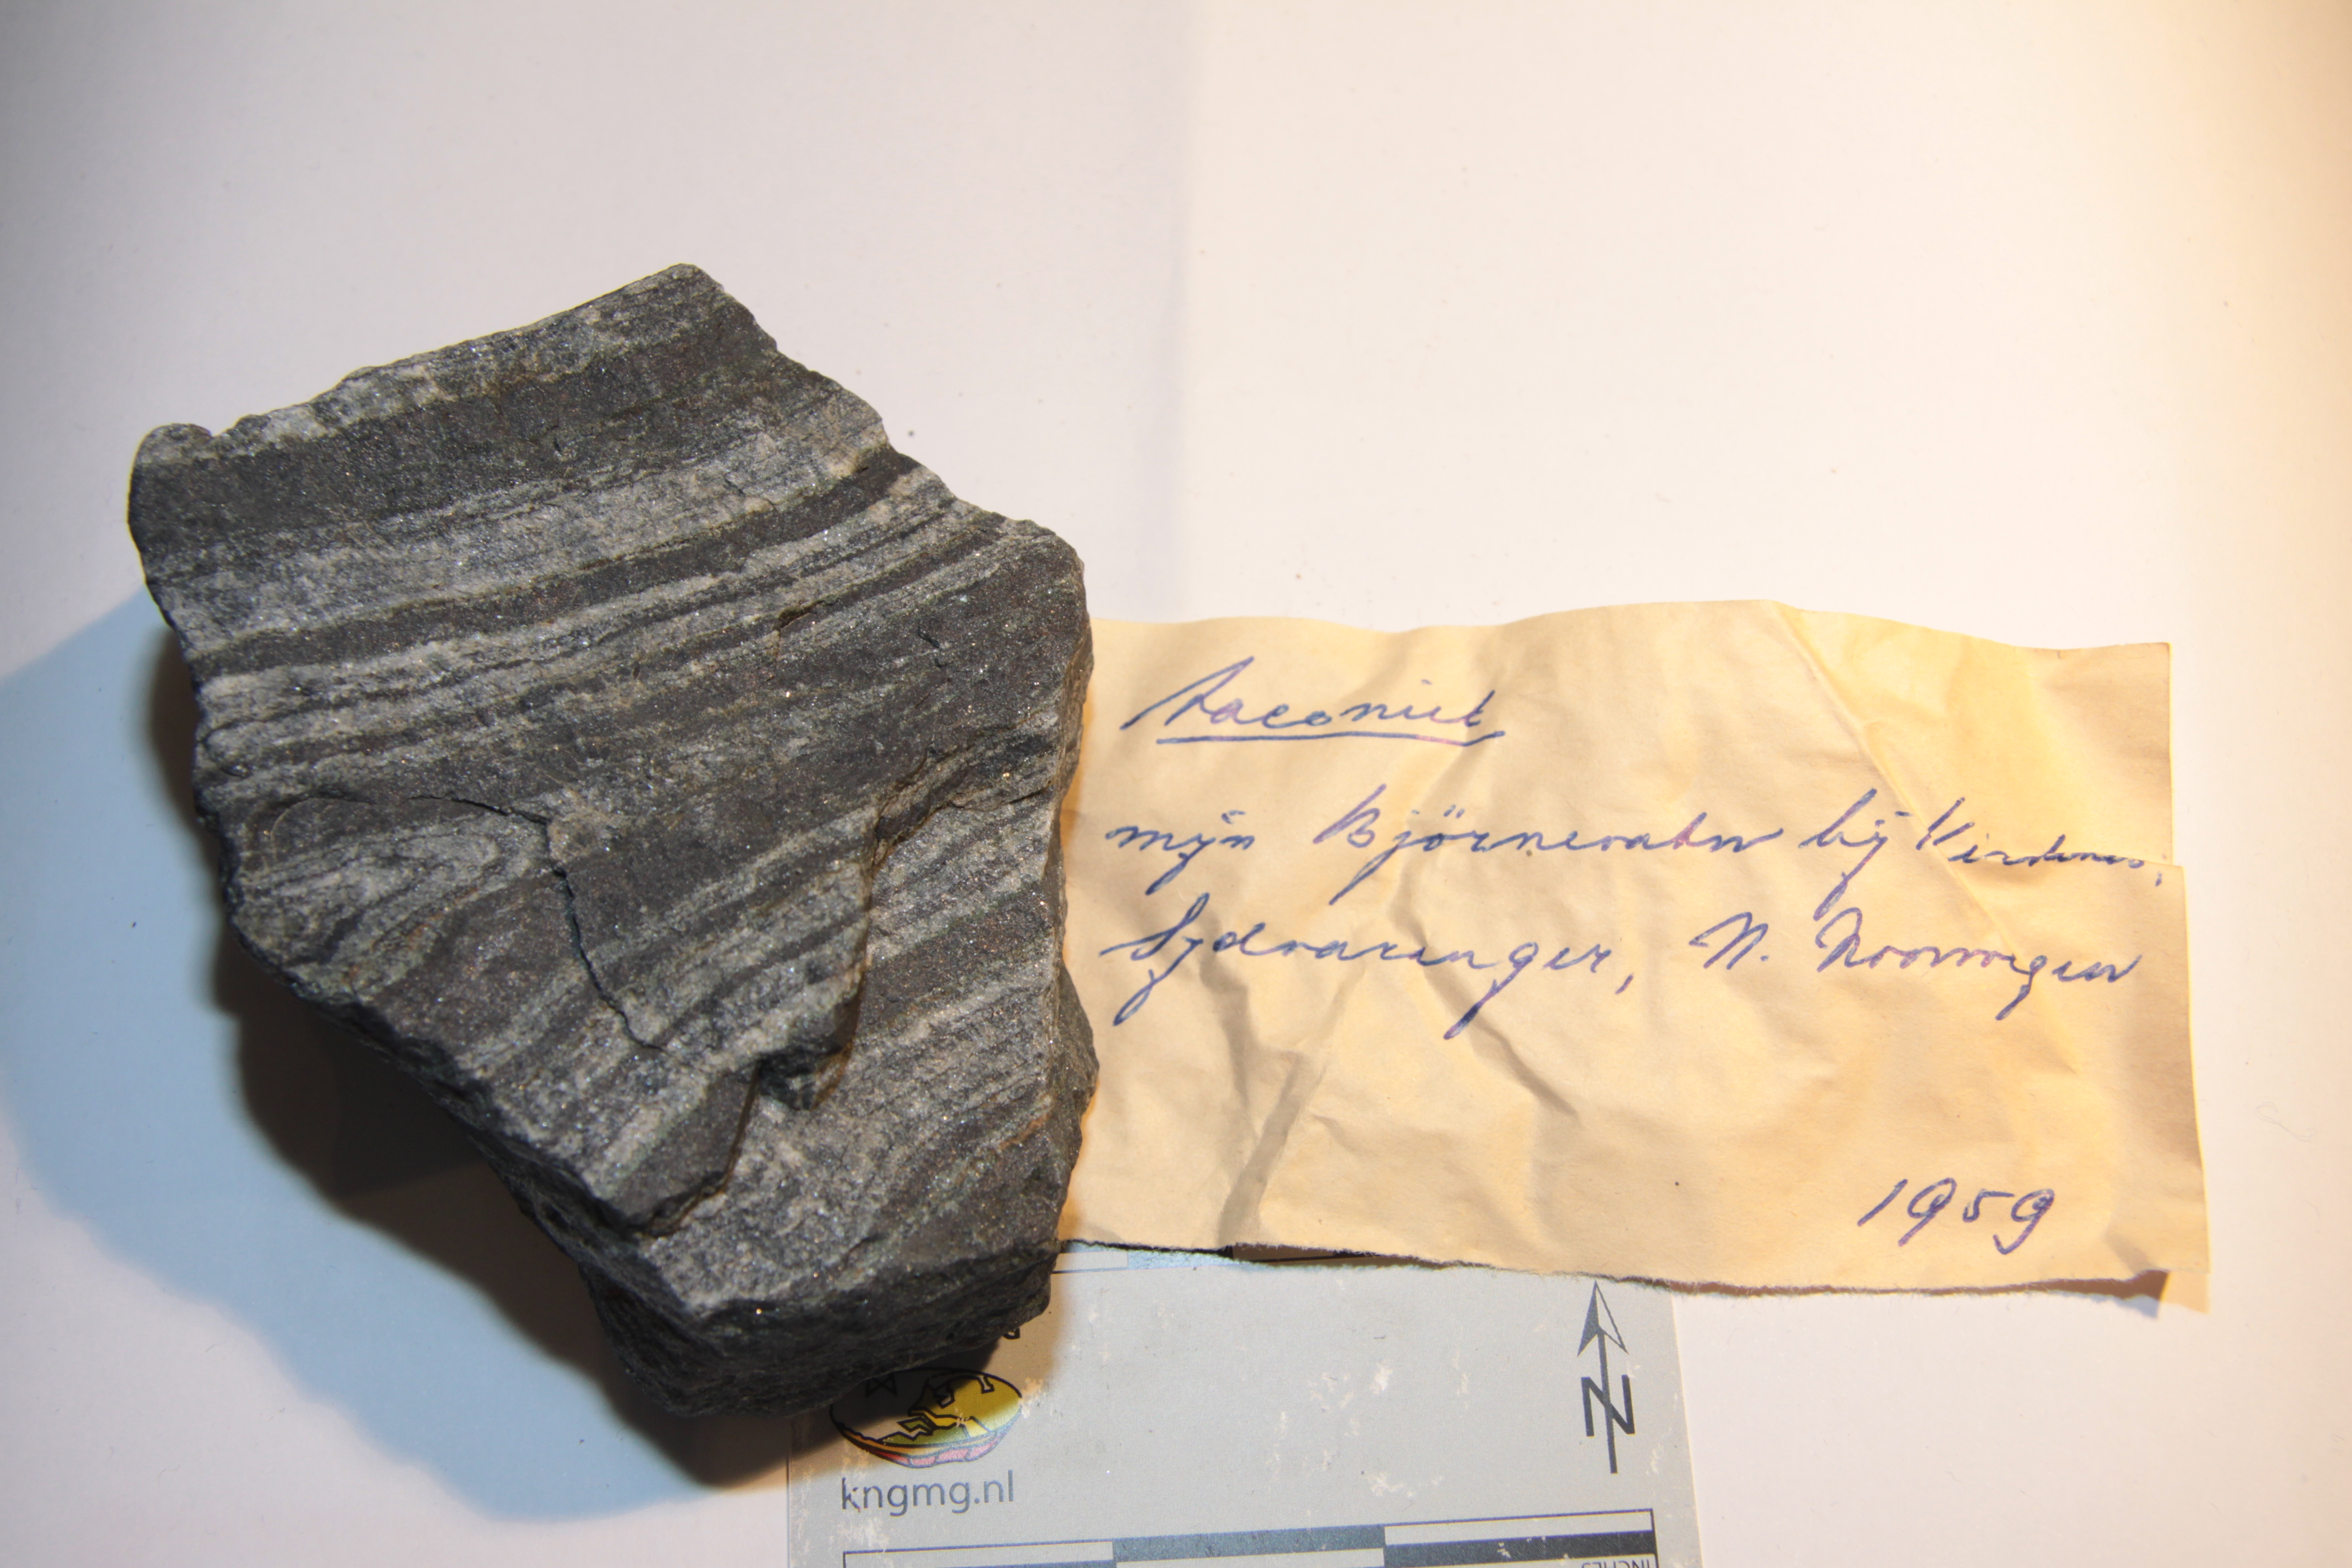 Taconiet
mijn Björnevatn bij Kirkenes,
Sydvaranger, N. Noorwegen
1959
N
kngmg.nl
INCHES